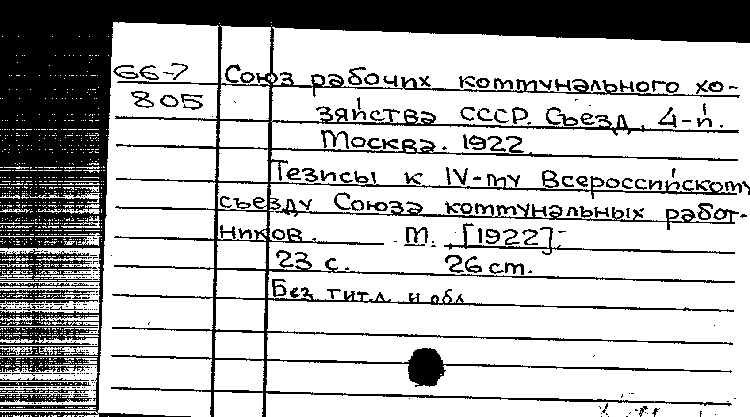 66-7 Союз рабочих коммунального хо-
805 зяйства СССР. Съезд, 4-й.
Москва. 1922
Тезисы к IV-му Всероссийскому
съезду Союза коммунальных работ-
ников. М. [1922].
23 с. 26 cm.
Без тит. л. и обл